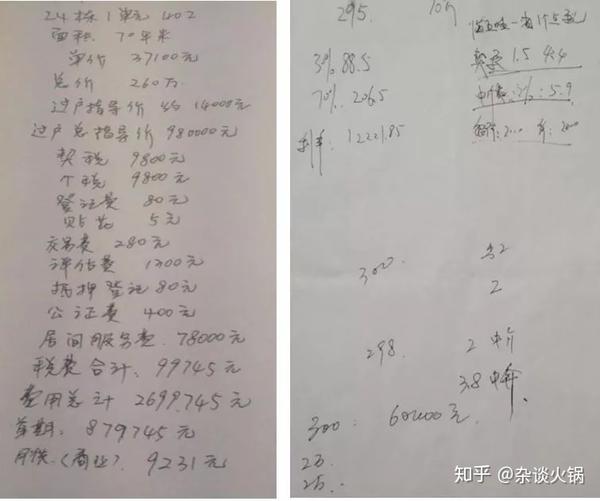 24栋1单元402
面积: 70平米
单价 37100元
总价 260万
过户指导价 约14000元
过户总指导价 980000元
契税 9800元
个税 9800元
登记费 80元
贴花 5元
交易费 280元
评估费 1300元
抵押登记 80元
公证费 400元
居间服务费 78000元
税费合计: 99745元
费用总计 2699745元
首期: 879745元
月供(商业). 9231元
295.
3% 88.5
70% 206.5
12221.85
契税 1.5 4.4
中介费: 2%: 5.9
300
2
298. 2 中介
3.8 中介
300: 60000元
知乎 @杂谈火锅